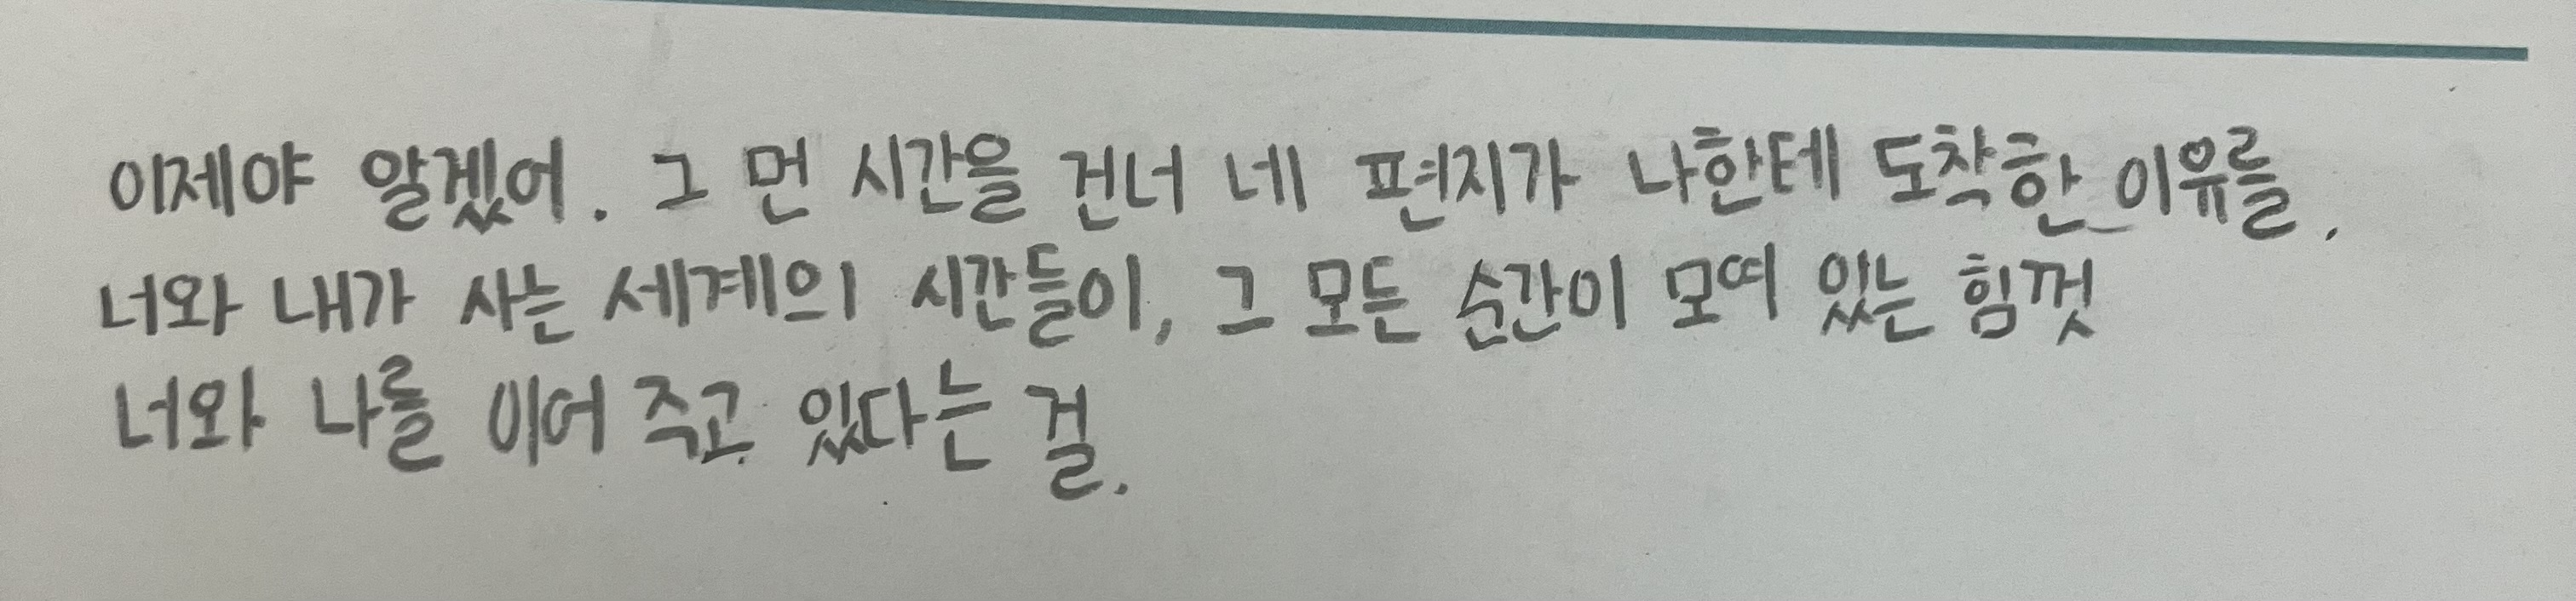 이제야 알겠어. 그 먼 시간을 건너 네 편지가 나한테 도착한 이유를.
너와 내가 사는 세계의 시간들이, 그 모든 순간이 모여 있는 힘껏
너와 나를 이어 주고 있다는 걸.